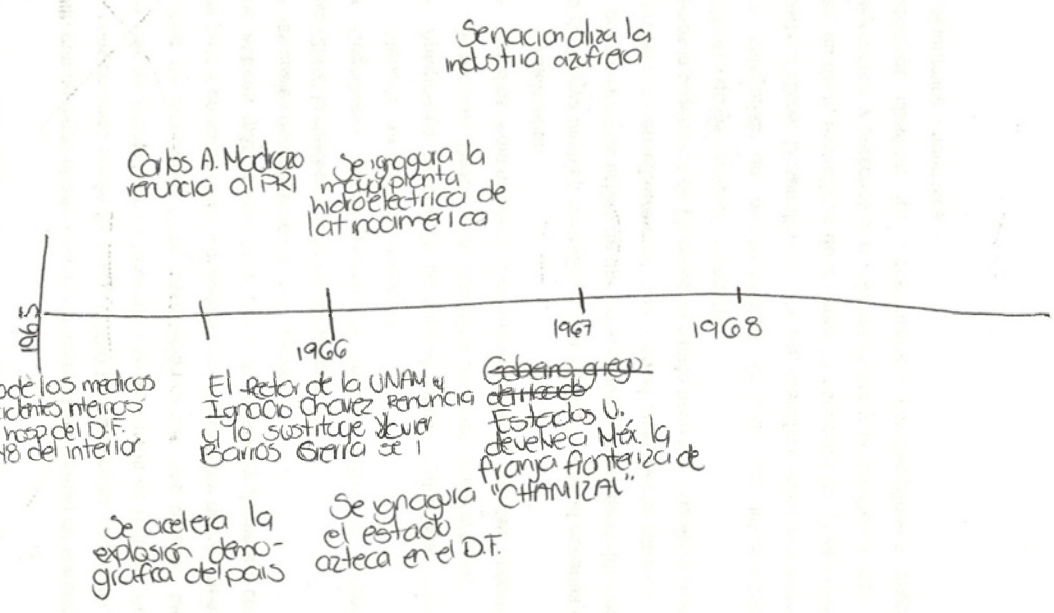 Se nacionaliza la
industria azufrera
Carlos A. Madrazo
renuncia al PRI
Se ignagura la
mayor planta
hidroeléctrica de
latinoamerica
1965
1966
1967
1968
o de los medicos
identes internos
hosp del D.F.
48 del interior
El Rector de la UNAM y
Ignacio Chavez, renuncia
y lo sustituye Xavier
Barros Sierra se
Gobierno griego
derrocado
Estados U.
devuelve a Méx. la
franja fronteriza de
"CHAMIZAL"
Se acelera la
explosión demo-
grafica del pais
Se ignagura
el estado
azteca en el D.F.